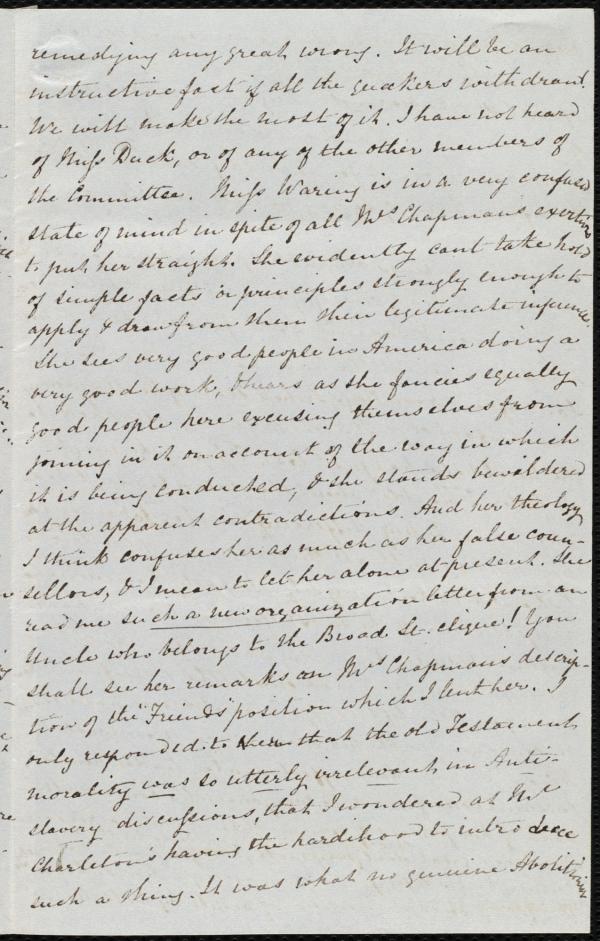 remedying any great wrong. It will be an
instructive fact if all the quakers withdraw!
We will make the most of it. I have not heard
of Miss Duck, or of any of the other members of
the Committee. Miss Waring is in a very confused
state of mind in spite of all Mrs Chapman's exertions
to put her straight. She evidently cant take hold
of simple facts or principles strongly enough to
apply & draw from them their legitimate inference.
She sees very good people in America doing a
very good work, & hears as she fancies equally
good people here excusing themselves from
joining in it on account of the way in which
it is being conducted, & she stands bewildered
at the apparent contradictions. And her theology
I think confuses her as much as her false coun-
sellors, & I mean to let her alone at present. She
read me such a new organization letter from an
Uncle who belongs to the Broad St. clique! You
shall see her remarks on Mrs Chapman's descrip-
tion of the "Friends" position which I lent her. I
only responded to them that the old Testament
morality was so utterly irrelevant in Anti-
slavery discussions, that I wondered at Mr
Charleton's having the hardihood to introduce
such a thing. It was what no genuine Abolitionist